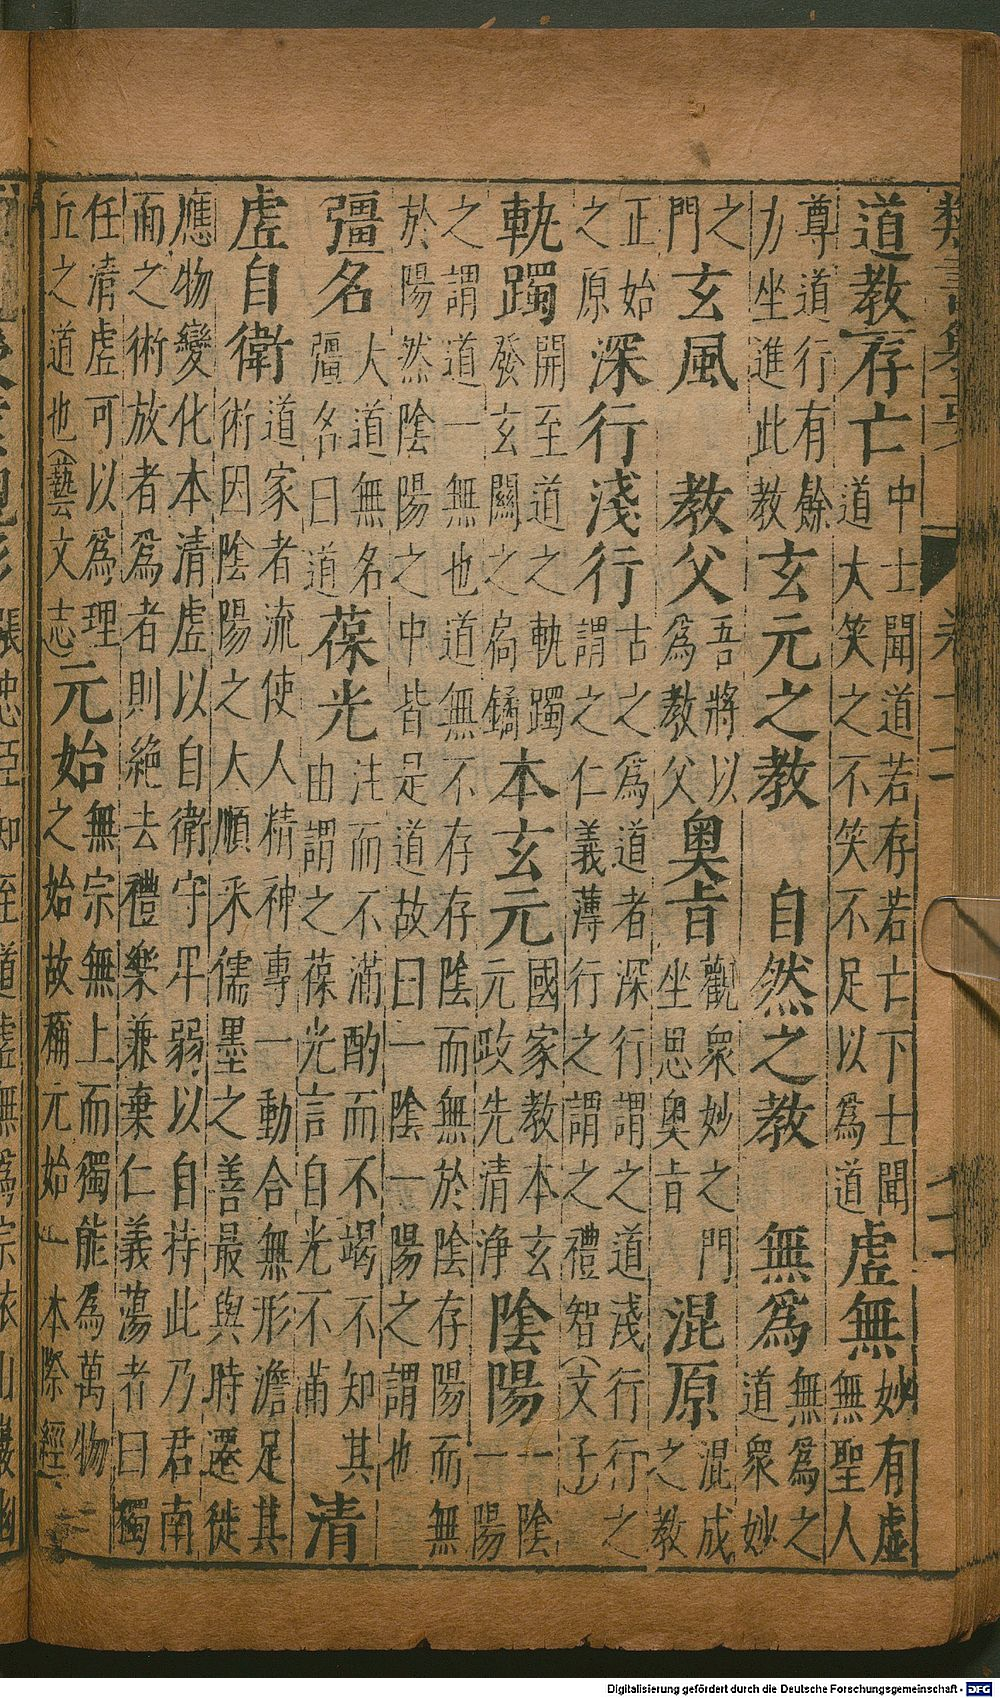 類書纂要 卷十二 十一
道教存亡 中士聞道若存若亡下士聞道大笑之不笑不足以為道 虛無 妙有虛無聖人
尊道行有餘力坐進此教 玄元之教 自然之教 無為 無為之道衆妙
之門 玄風 教父 吾將以為教父 奧旨 觀衆妙之門坐思奧旨 混原 混成之教
正始之原 深行淺行 古之為道者深行謂之道淺行行之謂之仁義薄行之謂之禮智(文子)
軌躅 開至道之軌躅發玄關之扃鐍 本玄元 國家教本玄元政先清淨 陰陽 一陰一陽
之謂道一無也道無不存存陰而無於陰存陽而無於陽然陰陽之中皆是道故曰一陰一陽之謂也
彊名 大道無名彊名曰道 葆光 注而不滿酌而不竭不知其由謂之葆光言自光不莆 清
虛自衛 道家者流使人精神專一動合無形澹足其術因陰陽之大順采儒墨之善最與時遷徙
應物變化本清虛以自衛守平弱以自持此乃君南而之術放者為者則絕去禮樂兼棄仁義蕩者曰獨
任清虛可以為理丘之道也(藝文志 元始 無宗無上而獨能為萬物之始故稱元始 本際經)
Digitalisierung gefördert durch die Deutsche Forschungsgemeinschaft - DFG